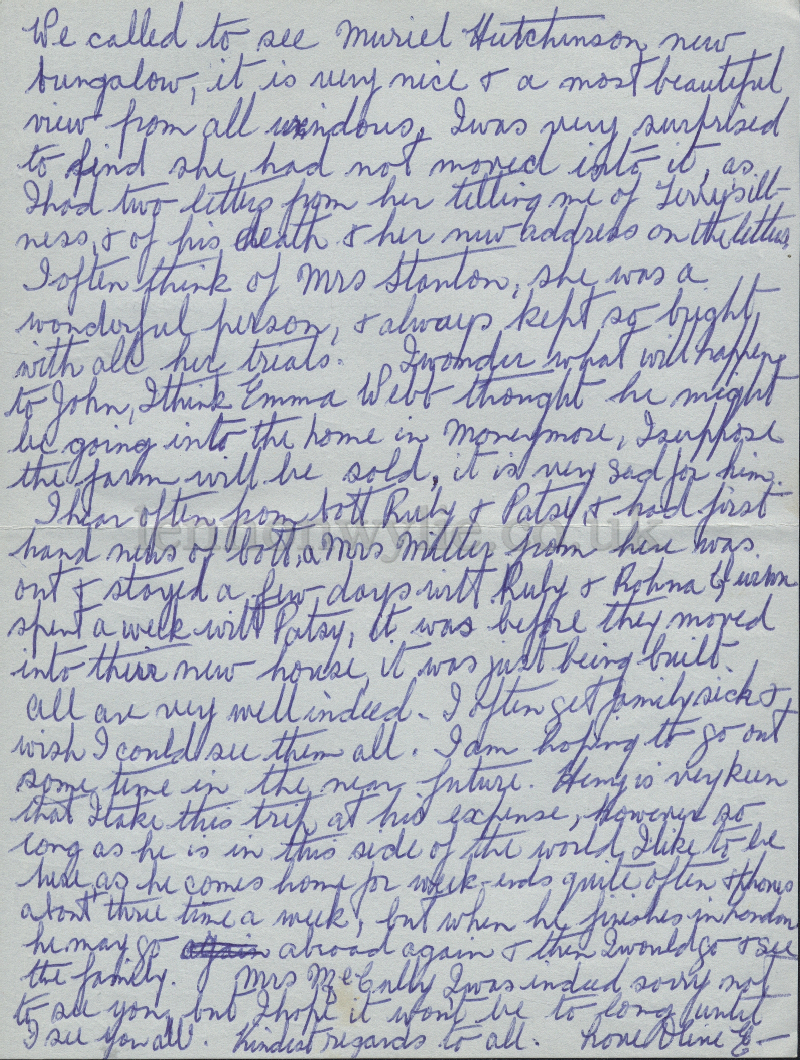 We called to see Muriel Hutchinson new
bungalow, it is very nice & a most beautiful
view from all windous, I was very surprised
to find she had not moved into it, as
I had two letters from her telling me of Terry's ill-
ness, & of his death & her new address on the letters.
I often think of Mrs Stanton, she was a
wonderful person, & always kept so bright,
with all her trials. I wonder what will happen
to John, I think Emma Webb thought he might
be going into the home in Moneymore, I suppose
the farm will be sold, it is very sad for him.
I hear often from bott Ruby & Patsy & had first
hand news of bott, a Mrs Miller from here was
out & stayed a few days witt Ruby & Rohna
spent a week witt Patsy, it was before they moved
into their new house, it was just being built.
All are very well indeed. I often get family sick &
wish I could see them all. I am hoping to go out
some time in the near future. Henry is very keen
that I take this trip at his expense, however so
long as he is in this side of the world I like to be
here, as he comes home for week-ends quite often & phones
about three time a week, but when he finishes in London
he may go again abroad again & then I would go & see
the family. Mrs McCully I was indeed sorry not
to see you, but I hope it wont be to long until
I see you all. Kindest regards to all. Love Oline E—
lennonwylie.co.uk